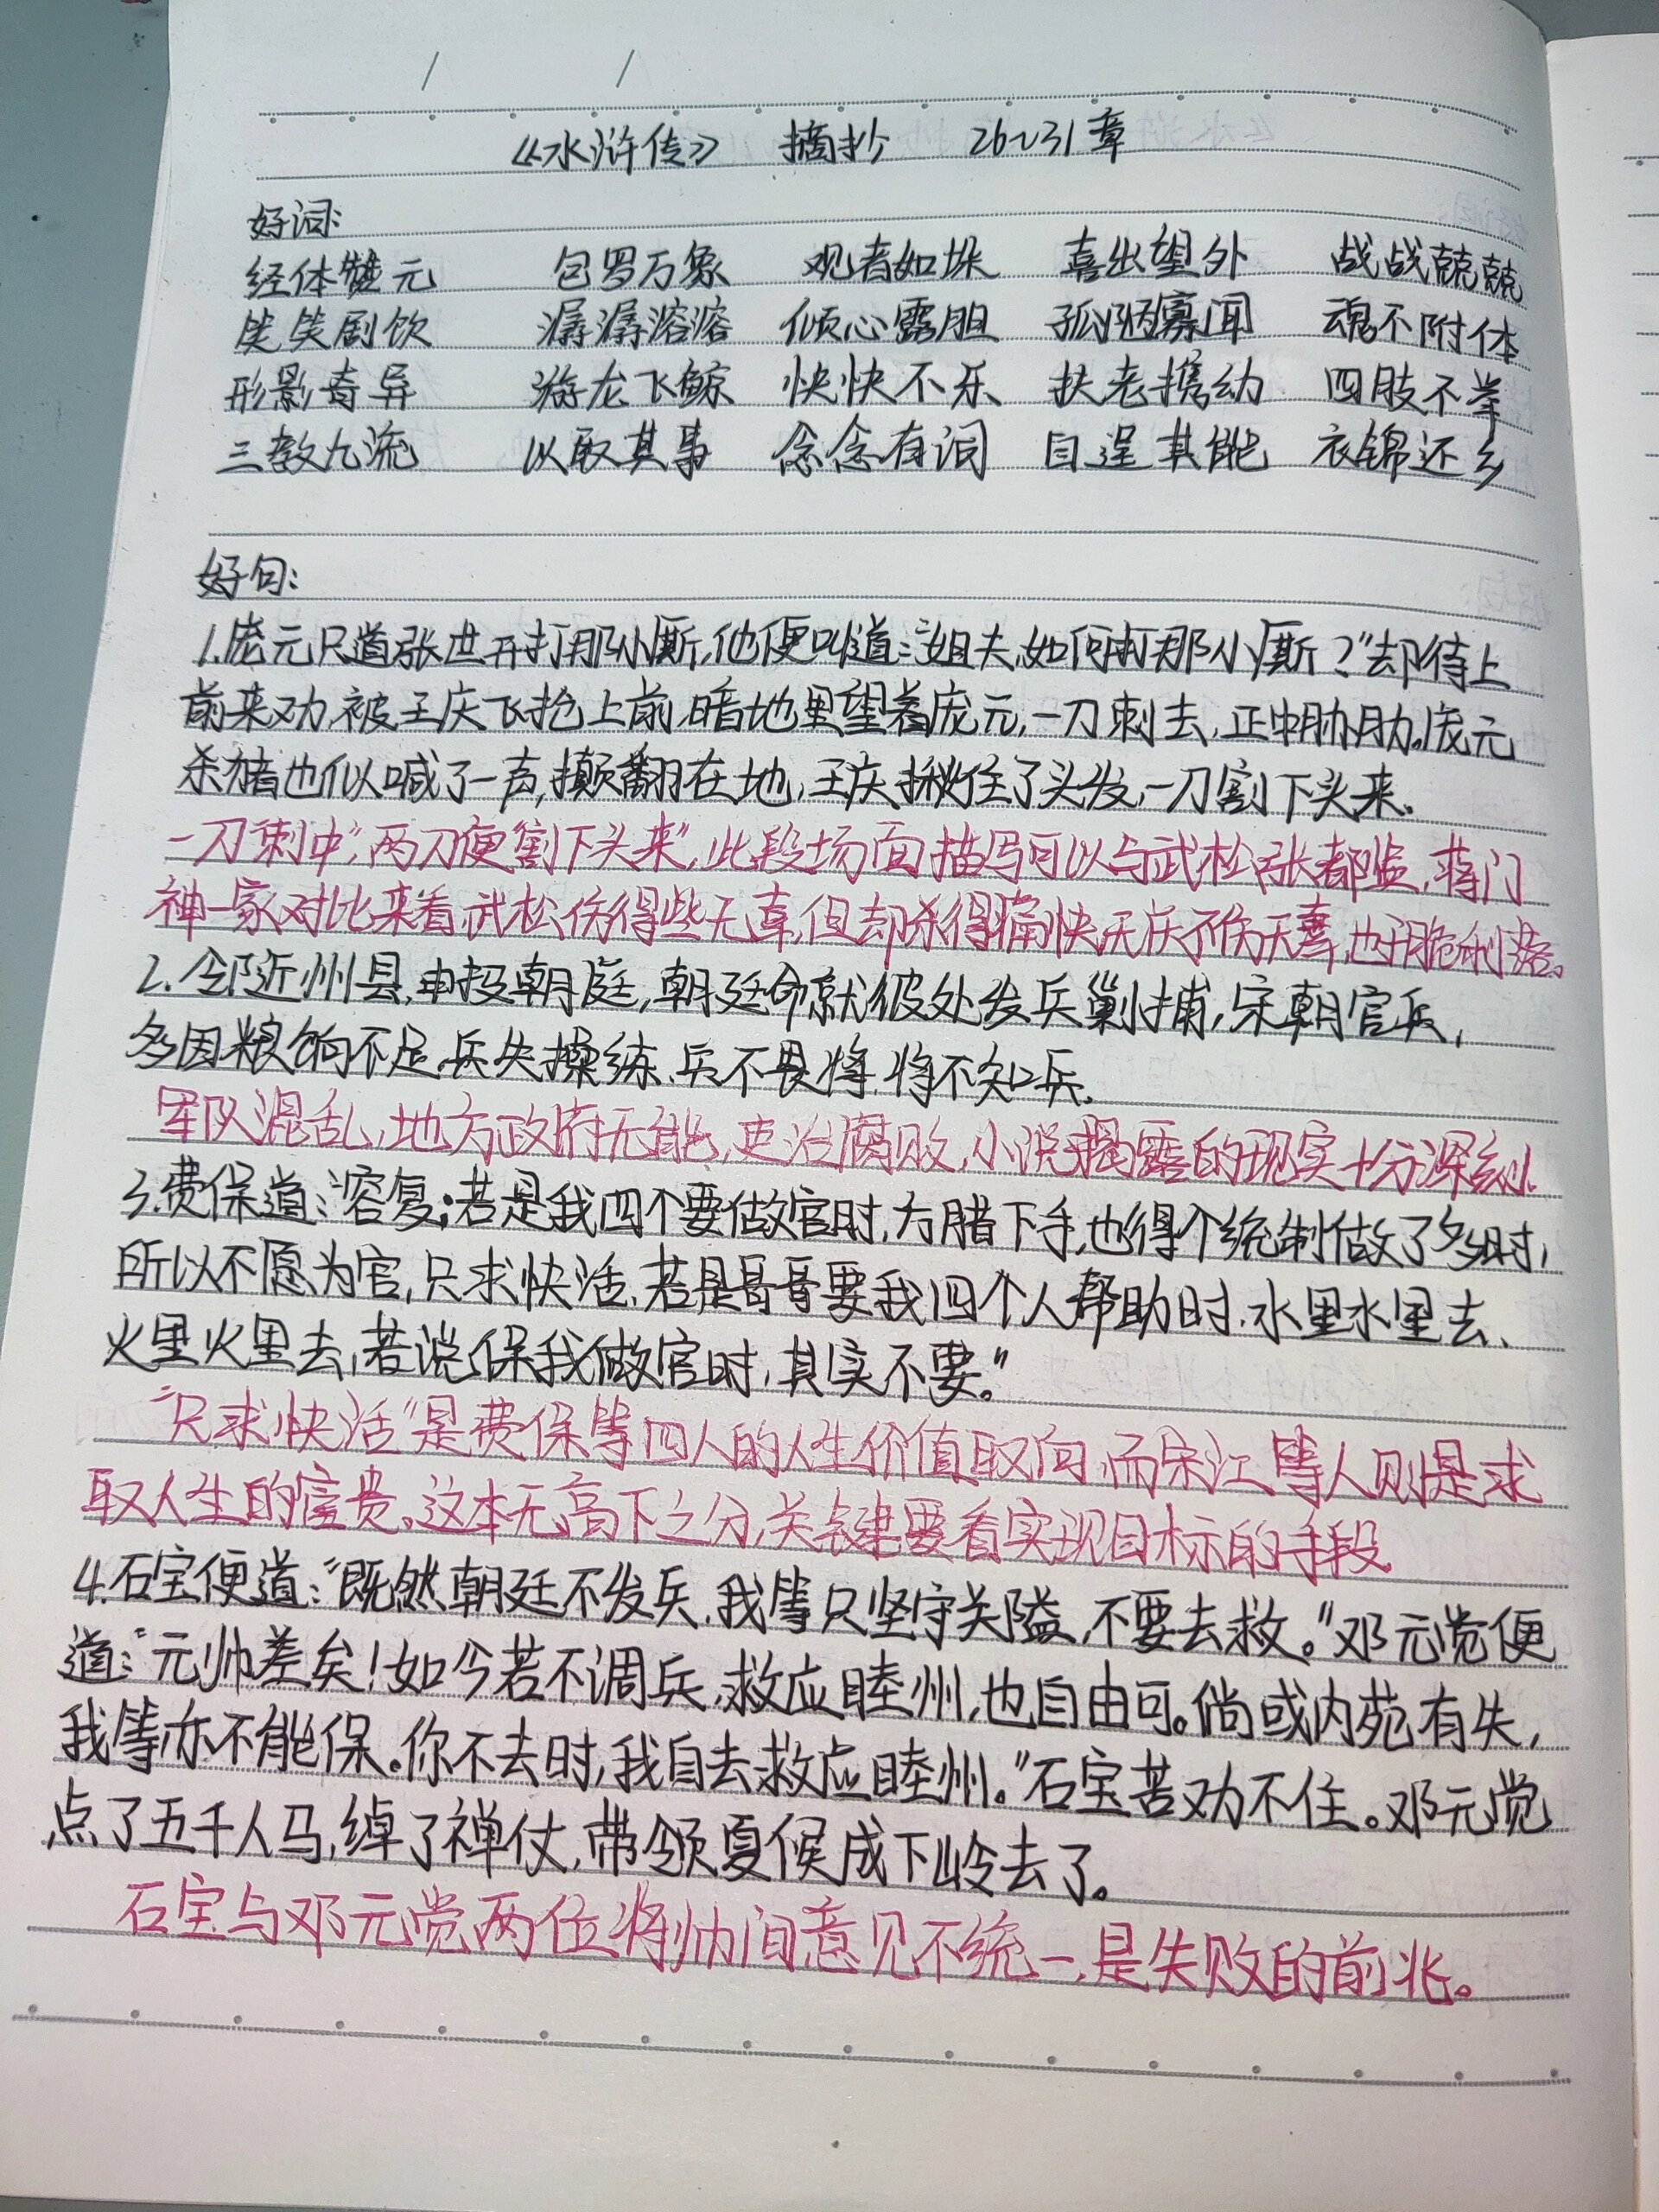 《水浒传》 摘抄 26~31章
好词:
经体赞元 包罗万象 观者如堵 喜出望外 战战兢兢
笑笑剧饮 潺潺溶溶 倾心露胆 孤陋寡闻 魂不附体
形影奇异 游龙飞鲸 怏怏不乐 扶老携幼 四肢不举
三教九流 以取其事 念念有词 自逞其能 衣锦还乡
好句:
1.庞元只道张世开打那小厮,他便叫道:“姐夫,如何打那小厮?”却待上
前来劝,被王庆飞抢上前,暗地里望着庞元,一刀刺去,正中胁肋。庞元
杀猪也似喊了一声,攧翻在地,王庆揪住了头发,一刀割下头来。
一刀刺中”,两刀便“割下头来”,此段场面描写可以与武松张都监,蒋门
神一家对比来看,武松伤得些无辜,但却杀得痛快,王庆不伤无辜,也干脆利落。
2.邻近州县,申报朝庭,朝廷命就彼处发兵剿捕,宋朝官兵,
多因粮饷不足,兵失操练,兵不畏将,将不知兵。
军队混乱,地方政府无能,吏治腐败,小说揭露的现实十分深刻。
3.费保道:容复;若是我四个要做官时,方腊下手,也得个统制做了多时,
所以不愿为官,只求快活,若是哥哥要我四个人帮助时,水里水里去、
火里火里去,若说保我做官时,其实不要。”
“只求快活”是费保等四人的人生价值取向,而宋江等人则是求
取人生的富贵。这本无高下之分,关键要看实现目标的手段
4.石宝便道:“既然朝廷不发兵,我等只坚守关隘,不要去救。”邓元觉便
道:“元帅差矣!如今若不调兵,救应睦州,也自由可。倘或内苑有失,
我等亦不能保。你不去时,我自去救应睦州。”石宝苦劝不住。邓元觉
点了五千人马,绰了禅仗,带领夏候成下岭去了。
石宝与邓元觉两位将帅间意见不统一,是失败的前兆。